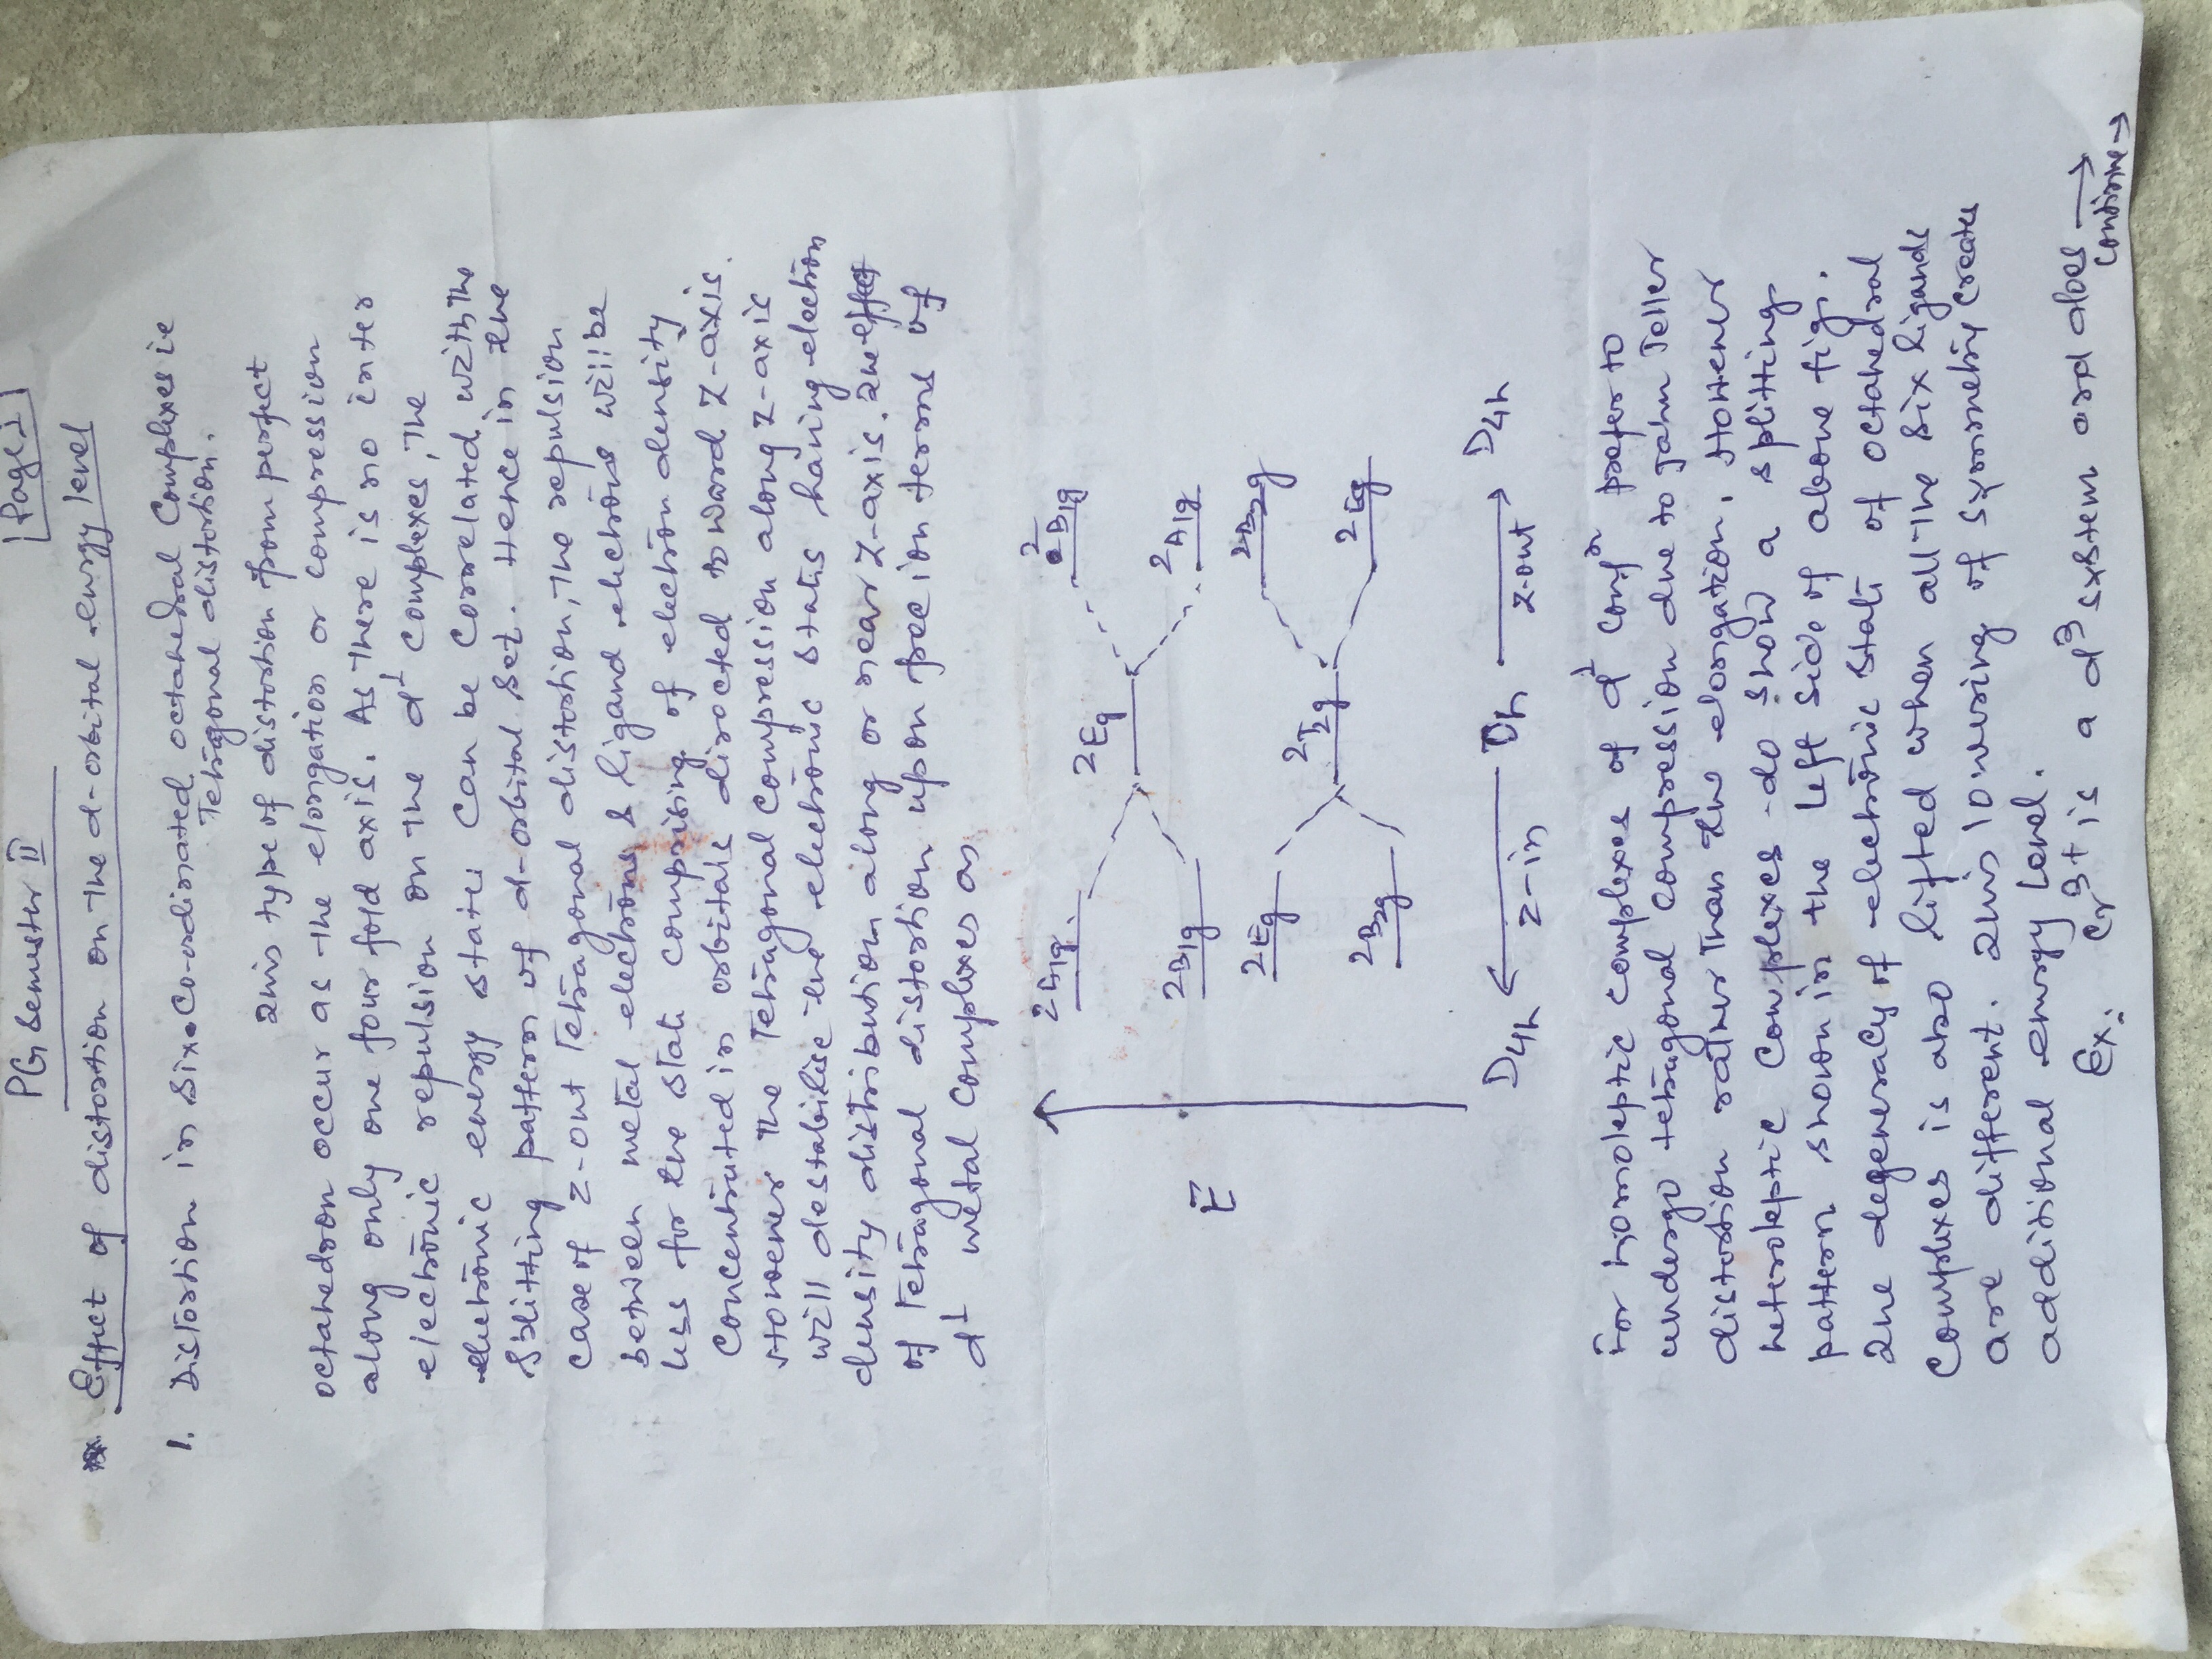 PG Semester II
Page 1
Effect of distortion on the d-orbital energy level
1. Distortion in six-co-ordinated octahedral complexes ie
Tetragonal distortion.
This type of distortion from perfect
octahedron occur as the elongation or compression
along only one four fold axis. As there is no inter
electronic repulsion on the d¹ complexes, the
electronic energy states can be correlated with the
splitting pattern of d-orbital set. Hence in the
case of z-out Tetragonal distortion, the repulsion
between metal electrons & ligand electrons will be
less for the state comprising of electron density
concentrated in orbitals directed toward Z-axis.
However the Tetragonal compression along Z-axis
will destabilise the electronic states having electron
density distribution along or near Z-axis. The effect
of Tetragonal distortion upon free ion terms of
d¹ metal complexes as
E
²A1g
²B1g
²Eg
²B2g
²Eg
²T2g
²B1g
²A1g
²B2g
²Eg
D4h ← z-in Oh → z-out D4h
For homoleptic complexes of d¹ confⁿ prefer to
undergo tetragonal compression due to Jahn Teller
distortion rather than the elongation. However
heteroleptic complexes do show a splitting
pattern shown in the left side of above fig.
The degeneracy of electronic state of octahedral
complexes is also lifted when all the six ligands
are different. This lowering of symmetry create
additional energy level.
Ex: Cr³⁺ is a d³ system and does →
Continue →